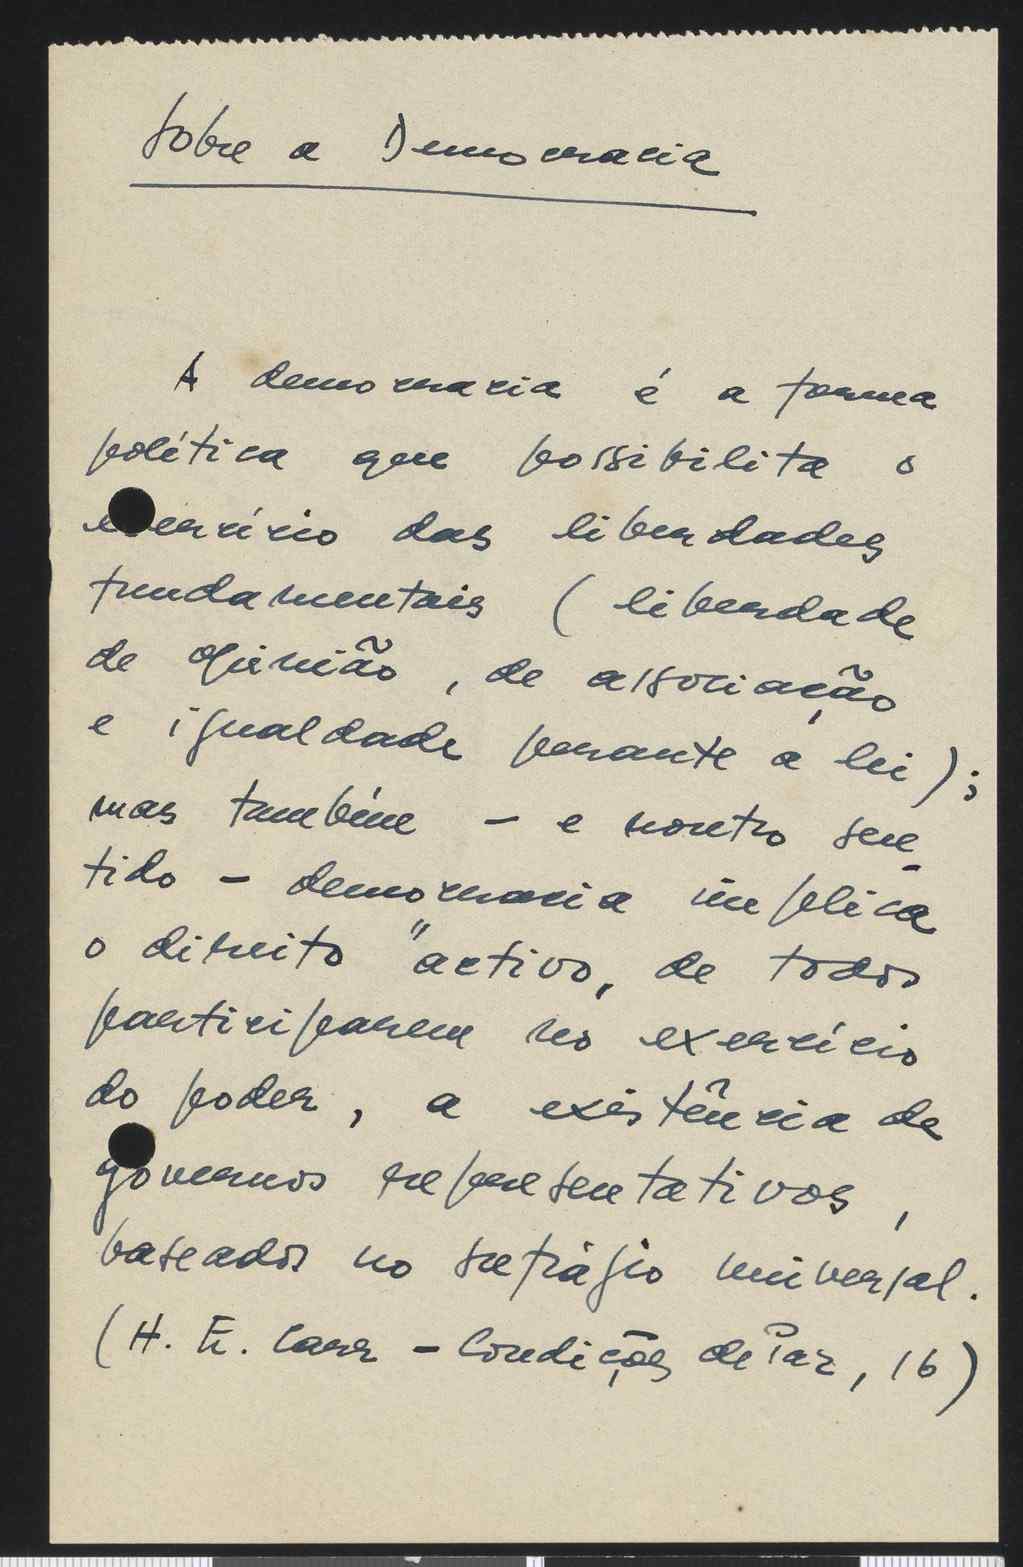 Sobre a Democracia
A democracia é a forma
política que possibilita o
exercício das liberdades
fundamentais (liberdade
de opinião, de associação
e igualdade perante a lei);
mas também - e noutro sen-
tido - democracia implica
o direito "activo" de todos
participarem no exercício
do poder, a existência de
governos representativos,
baseados no sufrágio universal.
(H. E. Carr - Condições de Paz, 16)